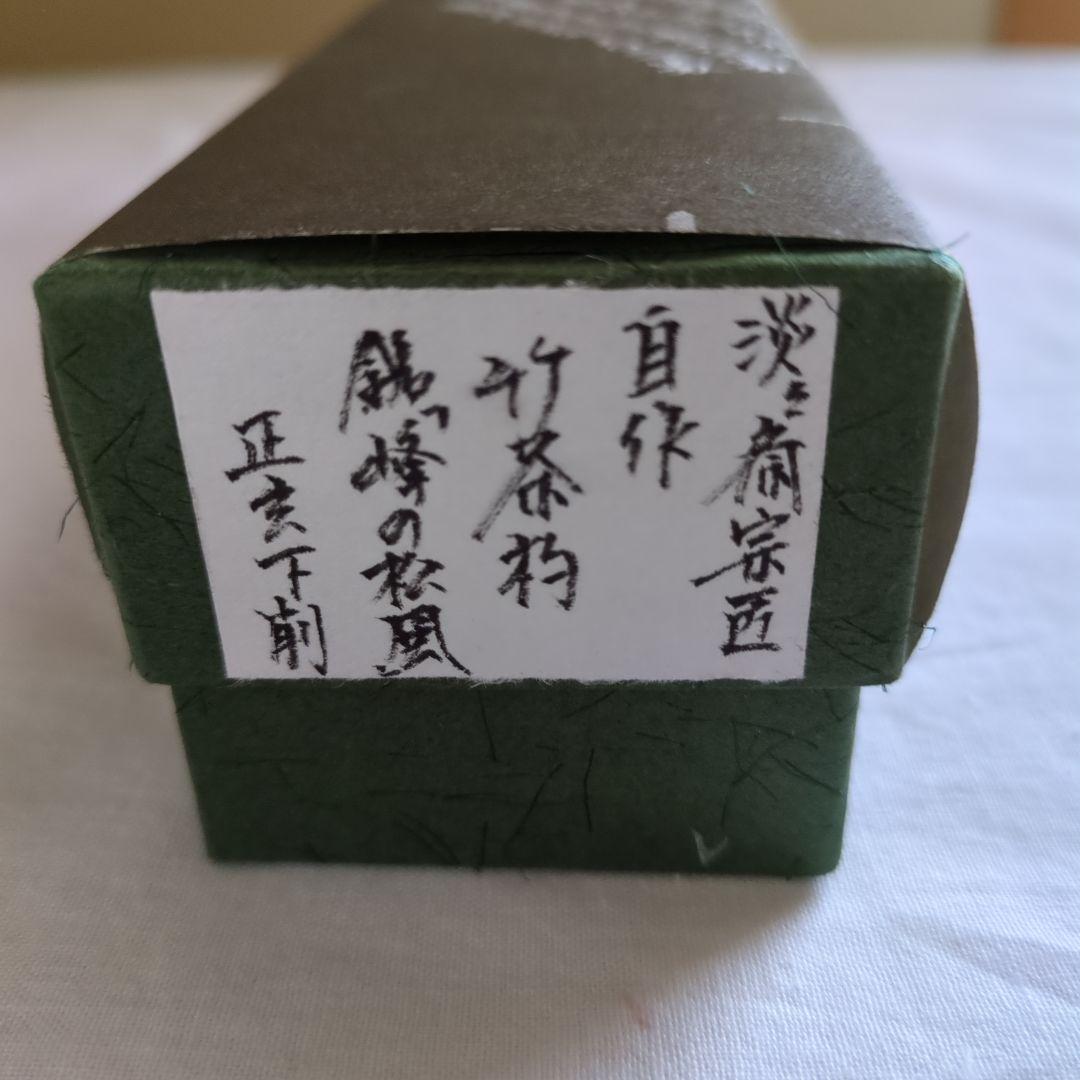 淡々斎宗匠
自作
竹茶杓
銘「峰の松風」
正玄下削